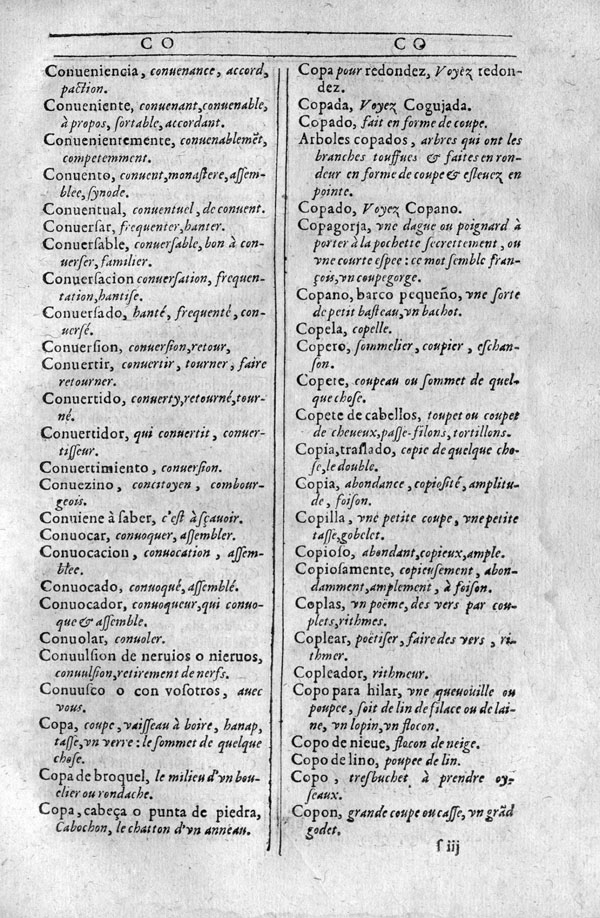 CO
CO
Conueniencia, conuenance, accord,
paction.
Conueniente, conuenant, conuenable,
à propos, ſortable, accordant.
Conuenientemente, conuenablemẽt,
competemment.
Conuento, conuent, monaſtere, aſſem-
blee, ſynode.
Conuentual, conuentuel, de conuent.
Conuerſar, frequenter, hanter.
Conuerſable, conuerſable, bon à con-
uerſer, familier.
Conuerſacion conuerſation, frequen-
tation, hantiſe.
Conuerſado, hanté, frequenté, con-
uerſé.
Conuerſion, conuerſion, retour,
Conuertir, conuertir, tourner, faire
retourner.
Conuertido, conuerty, retourné, tour-
né.
Conuertidor, qui conuertit, conuer-
tiſſeur.
Conuertimiento, conuerſion.
Conuezino, concitoyen, combour-
geois.
Conuiene à ſaber, c'eſt à ſçauoir.
Conuocar, conuoquer, aſſembler.
Conuocacion, conuocation, aſſem-
blee.
Conuocado, conuoqué, aſſemblé.
Conuocador, conuoqueur, qui conuo-
que & aſſemble.
Conuolar, conuoler.
Conuulſion de neruios o nieruos,
conuulſion, retirement de nerfs.
Conuuſco o con voſotros, auec
vous.
Copa, coupe, vaiſſeau à boire, hanap,
taſſe, vn verre : le ſommet de quelque
choſe.
Copa de broquel, le milieu d'vn bou-
clier ou rondache.
Copa, cabeça o punta de piedra,
Cabochon, le chatton d'vn anneau.
Copa pour redondez, Voyez redon-
dez.
Copada, Voyez Cogujada.
Copado, fait en forme de coupe.
Arboles copados, arbres qui ont les
branches touffues & faites en ron-
deur en forme de coupe & eſleuez en
pointe.
Copado, Voyez Copano.
Copagorja, vne dague ou poignard à
porter à la pochette ſecrettement, ou
vne courte eſpee : ce mot ſemble fran-
çois, vn coupegorge.
Copano, barco pequeño, vne ſorte
de petit baſteau, vn bachot.
Copela, copelle.
Copero, ſommelier, coupier, eſchan-
ſon.
Copete, coupeau ou ſommet de quel-
que choſe.
Copete de cabellos, toupet ou coupet
de cheueux, paſſe-filons, tortillons.
Copia, traſlado, copie de quelque cho-
ſe, le double.
Copia, abondance, copioſité, amplitu-
de, foiſon.
Copilla, vne petite coupe, vne petite
taſſe, gobelet.
Copioſo, abondant, copieux, ample.
Copioſamente, copieuſement, abon-
damment, amplement, à foiſon.
Coplas, vn poëme, des vers par cou-
plets, rithmes.
Coplear, poëtiſer, faire des vers, ri-
thmer.
Copleador, rithmeur.
Copo para hilar, vne queuouille ou
poupee, ſoit de lin de filace ou de lai-
ne, vn lopin, vn flocon.
Copo de nieue, flocon de neige.
Copo de lino, poupee de lin.
Copo, tresbuchet à prendre oy-
ſeaux.
Copon, grande coupe ou caſſe, vn grãd
godet.
ſ iij